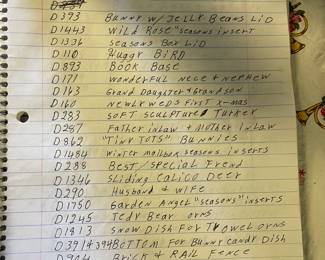 D393 BUNNY W/ JELLY BEANS LID
D1443 WILD ROSE "SEASONS INSERT
D1336 SEASONS BOX LID
D110 HUGGY BIRD
D893 BOOK BASE
D171 WONDERFUL NECE & NEPHEW
D163 GRAND DAUGHTER & GRANDSON
D160 NEWLYWEDS FIRST X-MAS
D283 SOFT SCULPTURE TURKEY
D287 FATHER IN LAW & MOTHER IN LAW
D862 "TINY TOTS" BUNNIES
D1484 WINTER MAILBOX SEASONS INSERTS
D288 BEST / SPECIAL FREND
D1346 SLIDING CALICO DEER
D290 HUSBAND & WIFE
D1750 GARDEN ANGEL "SEASONS" INSERTS
D1245 TEDY BEAR ORNS
D1813 SNOW DISH FOR TOWEL ORNS
D391 & 394 BOTTOM FOR BUNNY CANDY DISH
D904 BRICK & RAIL FENCE